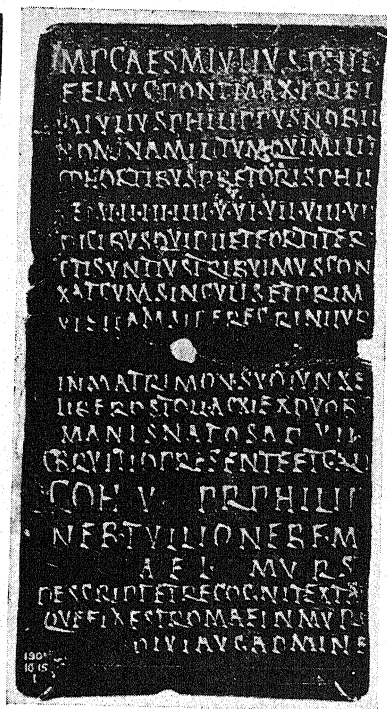 MP CAES M IVLIVS PHILI
F FEL AVG PONT MAX TRIB
M IVLIVS PHILIPPVS NOBIL
NOMINA MILITVM QVI MILIT
COHORTIBVS PRETORIS PHIL
I·II·III·IIII·V·VI·VII·VIII·VI
DICIBVS QVI PIE ET FORTITER
CTI SVNT IVS TRIBVIMVS CON
XAT CVM SINGVLIS ET PRIM
VT ETIAM SI PEREGRINI IVR
IN MATRIMON SVO IVNXE
EX DVOB
MANIS NATOS A D VII
BRVTTIO PRESENTE ET
COH V PR PHILIP
NEB TVLLIO NEB F M
AEL MVRS
DESCRIPT ET RECOGNIT EX TA
QVE FIX EST ROMAE IN MVR
DIVI AVG AD MINE
10 15